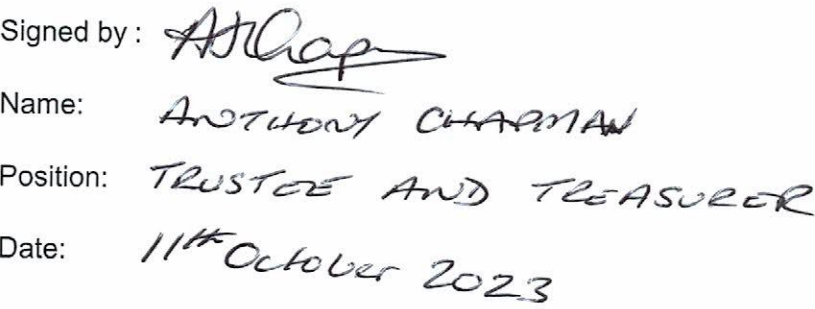 Signed by :
Name: ANTHONY CHAPMAN
Position: TRUSTEE AND TREASURER
Date: 11th October 2023